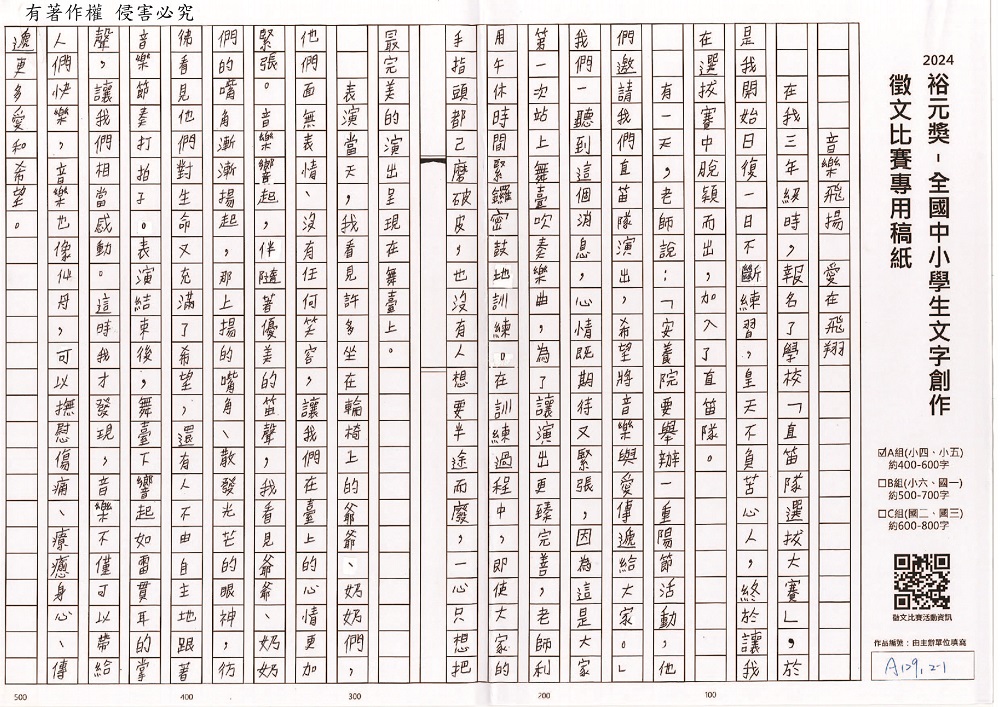 有著作權 侵害必究
2024
裕元獎-全國中小學生文字創作
徵文比賽專用稿紙
☑A組(小四、小五)
約400-600字
□B組(小六、國一)
約500-700字
□C組(國二、國三)
約600-800字
徵文比賽活動資訊
作品編號：由主辦單位填寫
A129.2-1
音樂飛揚 愛在飛翔
在我三年級時，報名了學校「直笛隊選拔大賽」，於
是我開始日復一日不斷練習，皇天不負苦心人，終於讓我
在選拔賽中脫穎而出，加入了直笛隊。
有一天，老師說：「安養院要舉辦一重陽節活動，他
們邀請我們直笛隊演出，希望將音樂與愛傳遞給大家。」
我們一聽到這個消息，心情既期待又緊張，因為這是大家
第一次站上舞臺吹奏樂曲，為了讓演出更臻完善，老師利
用午休時間緊鑼密鼓地訓練。在訓練過程中，即使大家的
手指頭都已磨破皮，也沒有人想要半途而廢，一心只想把
最完美的演出呈現在舞臺上。
表演當天，我看見許多坐在輪椅上的爺爺、奶奶們，
他們面無表情、沒有任何笑容，讓我們在臺上的心情更加
緊張。音樂響起，伴隨著優美的笛聲，我看見爺爺、奶奶
們的嘴角漸漸揚起，那上揚的嘴角、散發光芒的眼神，彷
彿看見他們對生命又充滿了希望，還有人不由自主地跟著
音樂節奏打拍子。表演結束後，舞臺下響起如雷貫耳的掌
聲，讓我們相當感動。這時我才發現，音樂不僅可以帶給
人們快樂，音樂也像仙丹，可以撫慰傷痛、療癒身心、傳
遞更多愛和希望。
100
200
300
400
500